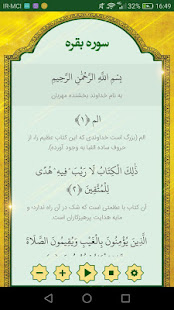 IR-MCI 32% 16:49
سوره بقره
بِسْمِ اللَّهِ الرَّحْمَٰنِ الرَّحِيمِ
به نام خداوند بخشنده مهربان
الم ﴿۱﴾
الم (بزرگ است خداوندی که این کتاب عظیم را، از
حروف ساده الفبا به وجود آورده).
ذَٰلِكَ الْكِتَابُ لَا رَيْبَ ۛ فِيهِ ۛ هُدًى
لِّلْمُتَّقِينَ ﴿۲﴾
آن کتاب با عظمتی است که شک در آن راه ندارد؛ و
مایه هدایت پرهیزکاران است.
الَّذِينَ يُؤْمِنُونَ بِالْغَيْبِ وَيُقِيمُونَ الصَّلَاةَ